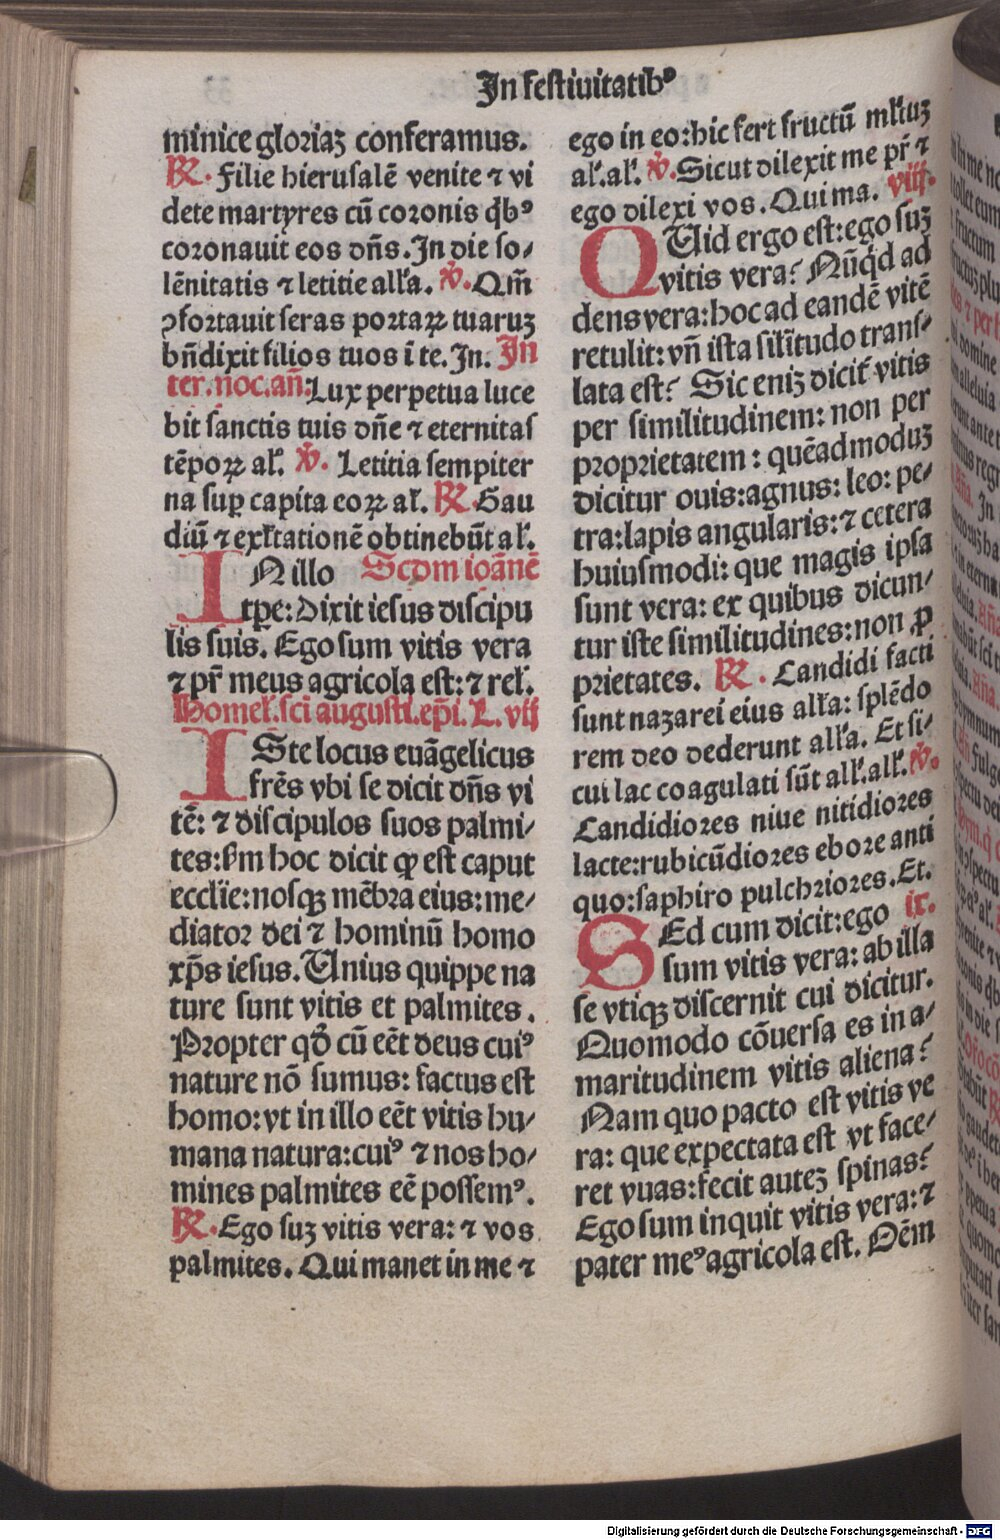 In festiuitatibꝰ
minice gloriaꝫ conferamus.
℟. Filie hierusalē venite ⁊ vi
dete martyres cū coronis q̇bꝰ
coronauit eos dn̄s. In die so/
lēnitatis ⁊ letitie alľa. ℣. Qm̄
ꝯfortauit seras portaꝝ tuaruꝫ
bn̄dixit filios tuos ī te. In. In
ter. noc. an̄. Lux perpetua luce
bit sanctis tuis dn̄e ⁊ eternitas
tēpoꝝ aľ. ℣. Letitia sempiter
na suꝑ capita eoꝝ aľ. ℟. Gau
diū ⁊ exľtationē obtinebūt aľ.
IN illo Scdm ioānē
tꝑe: Dixit iesus discipu
lis suis. Ego sum vitis vera
⁊ pr̄ meus agricola est: ⁊ reľ.
Homeľ. sci augusti. ep̄i. L. vij
ISte locus euāgelicus
frēs vbi se dicit dn̄s vi
tē: ⁊ discipulos suos palmi/
tes: ẞm hoc dicit ꝙ est caput
ecclīe: nosqꝫ mēbra eius: me/
diator dei ⁊ hominū homo
xp̄s iesus. Unius quippe na
ture sunt vitis et palmites.
Propter qd̄ cū eēt deus cuiꝰ
nature nō sumus: factus est
homo: vt in illo eēt vitis hu/
mana natura: cuiꝰ ⁊ nos ho/
mines palmites eē possemꝰ.
℟. Ego suꝫ vitis vera: ⁊ vos
palmites. Qui manet in me ⁊
ego in eo: hic fert fructū mľtuꝫ
aľ. aľ. ℣. Sicut dilexit me pr̄ ⁊
ego dilexi vos. Qui ma. viij.
QUid ergo est: ego suꝫ
vitis vera? Nūq̇d ad
dens vera: hoc ad eandē vitē
retulit: vn̄ ista silītudo trans/
lata est? Sic eniꝫ dicit̄ vitis
per similitudinem: non per
proprietatem: quēadmoduꝫ
dicitur ouis: agnus: leo: pe/
tra: lapis angularis: ⁊ cetera
huiusmodi: que magis ipsa
sunt vera: ex quibus dicun/
tur iste similitudines: non ꝓ
prietates. ℟. Candidi facti
sunt nazarei eius alľa: splēdo
rem deo dederunt alľa. Et si/
cui lac coagulati sūt alľ. alľ. ℣.
Candidiores niue nitidiores
lacte: rubicūdiores ebore anti
quo: saphiro pulchriores. Et.
SEd cum dicit: ego ix.
sum vitis vera: ab illa
se vtiqꝫ discernit cui dicitur.
Quomodo cōuersa es in a/
maritudinem vitis aliena?
Nam quo pacto est vitis ve
ra: que expectata est vt face/
ret vuas: fecit auteꝫ spinas?
Ego sum inquit vitis vera: ⁊
pater meꝰ agricola est. Oēm
Digitalisierung gefördert durch die Deutsche Forschungsgemeinschaft - DFG